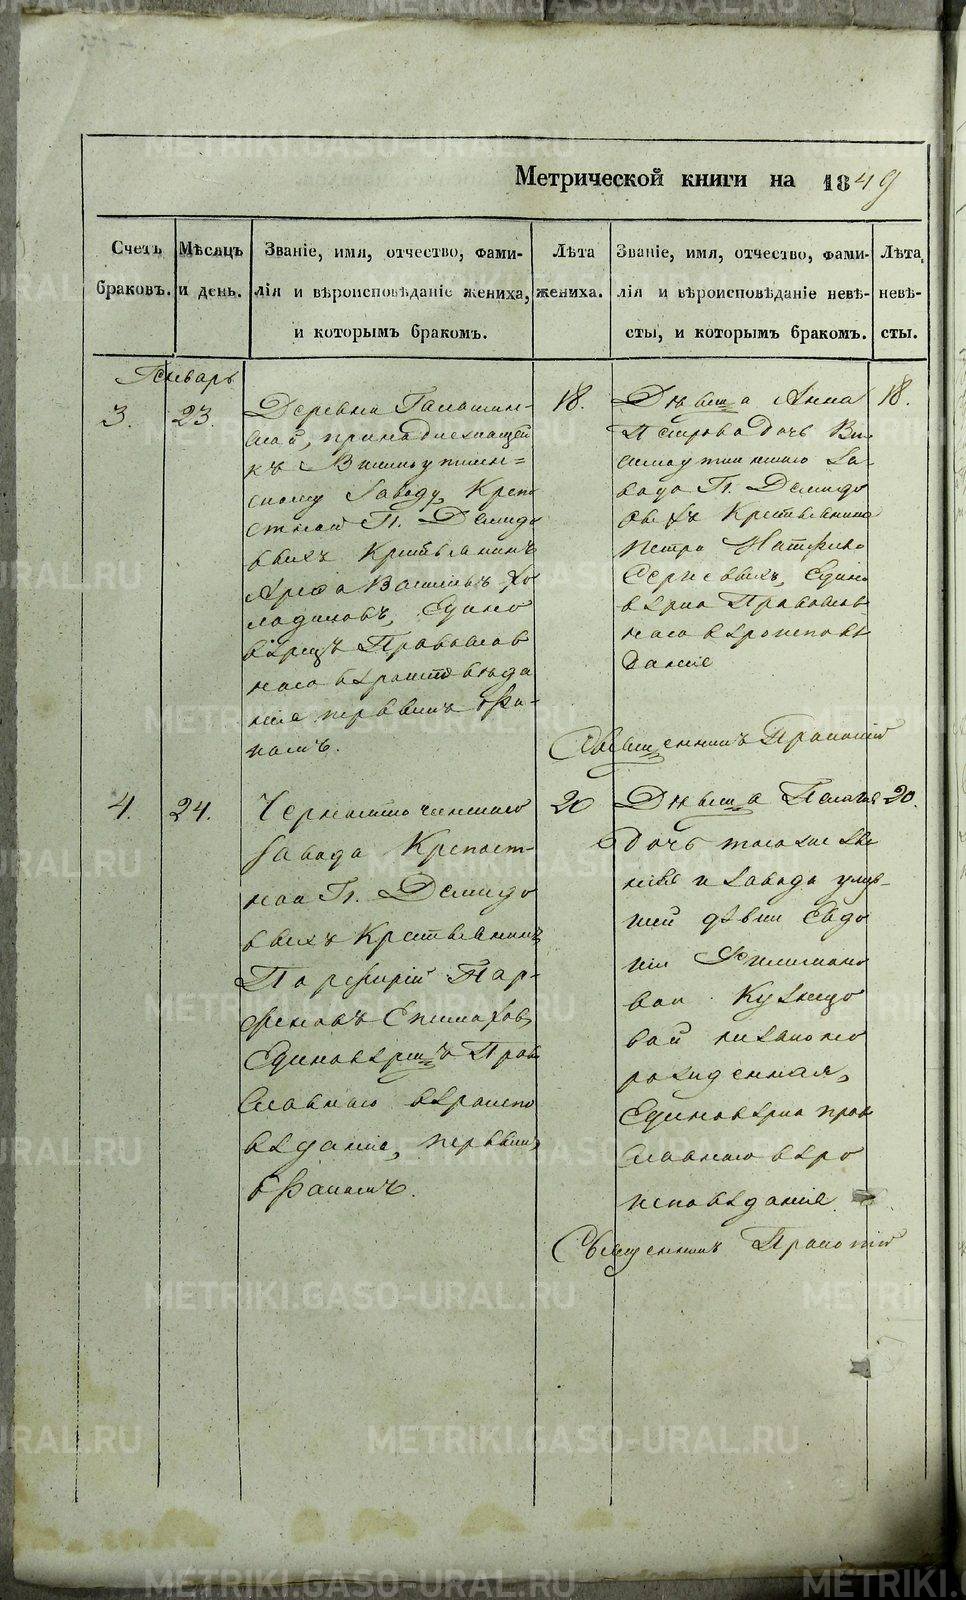 Метрической книги на 1849
Счетъ браковъ.
Мѣсяцъ и день.
Званіе, имя, отчество, фами-
лія и вѣроисповѣданіе жениха,
и которымъ бракомъ.
Лѣта жениха.
Званіе, имя, отчество, фами-
лія и вѣроисповѣданіе невѣ-
сты, и которымъ бракомъ.
Лѣта невѣ-
сты.
Январь
3.
23.
Деревни
принадлежащей
къ Висимоуткин-
скому Заводу, Крепо
стной Гг. Демидо
выхъ Крестьянинъ
Васильевъ Хо
лодиловъ, Едино
вѣрецъ Православ
наго вѣроисповѣда
нія первымъ бра-
комъ.
18.
Дѣвица Анна
Петрова Дочь Ви
симоуткинскаго За
вода Гг. Демидо
выхъ Крестьянина
Петра
Едино
вѣрка Православ
наго вѣроисповѣ
данія
18.
Священникъ
4.
24.
Черноисточинскаго
Завода Крепост-
ной Гг. Демидо
выхъ Крестьянинъ
Порфирій Пар-
феновъ
Единовѣрецъ Право
славнаго вѣроиспо
вѣданія, первымъ
бракомъ.
20
Дѣвица Пелагея
дочь того же се
ленія и Завода умер-
шей дѣвки Евдо
кіи Филимоно
вой Кузнецо
вой незаконно
рожденная,
Единовѣрка право
славнаго вѣро
исповѣданія
20.
Священникъ
METRIKI.GASO-URAL.RU